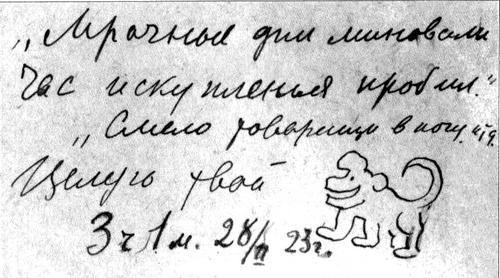 „Мрачные дни миновали
Час искупленья пробил."
„Смело товарищи в ногу" и т д
Целую твой
3 ч 1 м. 28/II 23 г.